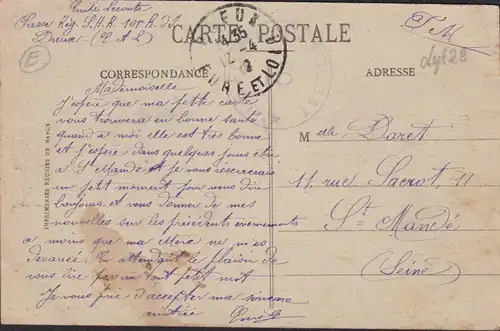 Emile Leconte
Dreux (E & L)
E
CARTE POSTALE
F M
DREUX
4-35
12 -4
EURE ET LOIR
Ly 628
CORRESPONDANCE
ADRESSE
IMPRIMERIES RÉUNIES DE NANCY
Mademoiselle
J'espère que ma petite carte
vous trouvera en bonne santé
quand a moi elle est très bonne
et j'espère dans quelques jours etre
a St Mandé et je vous reserverais
un petit moment pour vous dire
bonjours. et vous donner de mes
nouvelles sur les précédents évènements
a moins que ma Mere ne m'est
devancé. En attendant le plaisir de
vous lire par un tout petit mot
Je vous prie d'accepter ma sincère
amitiée Emile
Melle Daret
11 rue Sacrot, 11
St Mandé
(Seine)